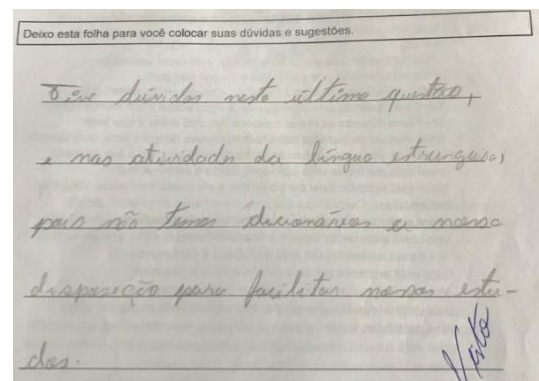 Deixo esta folha para você colocar suas dúvidas e sugestões.
Tive dúvidas nesta última questão,
e nas atividades da língua estrangeira,
pois não temos dicionários a nossa
disposição para facilitar nossos estu-
dos.
Visto